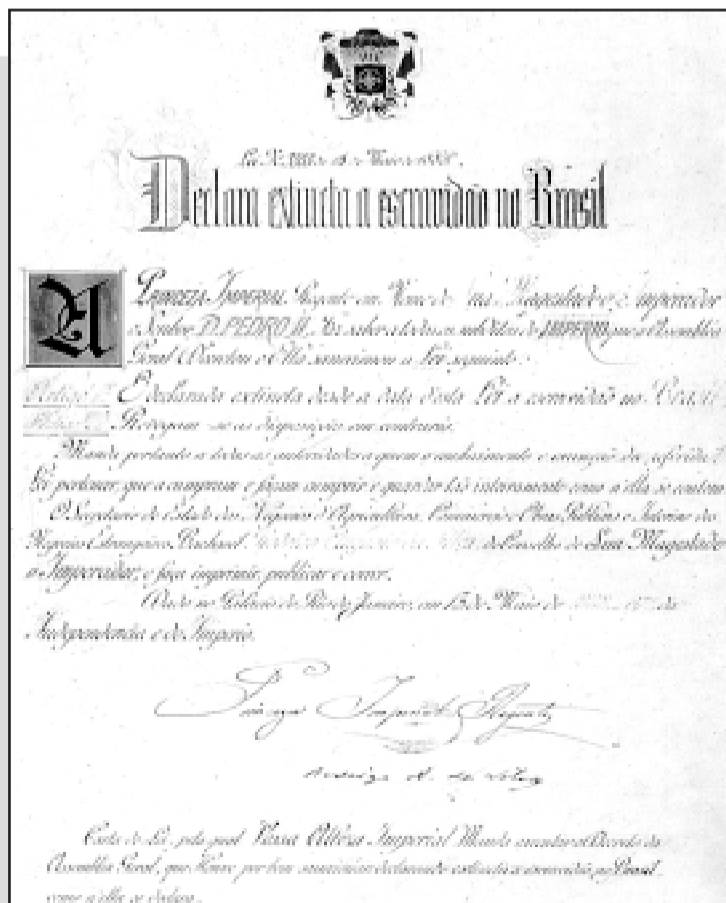 Declara extincta a escravidão no Brasil
A PRINCEZA IMPERIAL Regente em Nome de Sua Magestade o Imperador
o Senhor D. PEDRO II, Faz saber a todos os subditos do IMPERIO que a Assembléa
Geral Decretou e Ella sanccionou a Lei seguinte:
Artigo 1º É declarada extincta desde a data desta Lei a escravidão no Brazil
Revogam-se as disposições em contrario.
Manda portanto a todas as autoridades a quem o conhecimento e execução da referida
Lei pertencer que a cumpram e façam cumprir e guardar tão inteiramente como n'ella se contem
O Secretario de Estado dos Negocios d'Agricultura, Commercio e Obras Publicas e Interino dos
Negocios Estrangeiros, Bacharel do Conselho de Sua Magestade
o Imperador, o faça imprimir publicar e correr.
Dado no Palacio do Rio de Janeiro, em 13 de Maio de da
Independencia e do Imperio.
Princeza Imperial Regente
Rodrigo A. da Silva
Carta de Lei, pela qual Vossa Alteza Imperial Manda executar o Decreto da
Assembléa Geral, que Houve por bem sanccionar declarando extincta a escravidão no Brasil
como n'ella se declara.